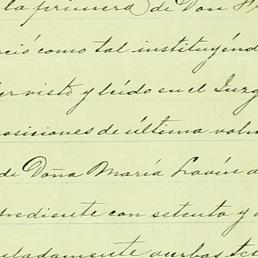 la primera) de Don
ció como tal instituyén
er visto y leído en el Juzg
posiciones de última volun
de Doña María Lavín
pediente con setenta y
uladamente ambas